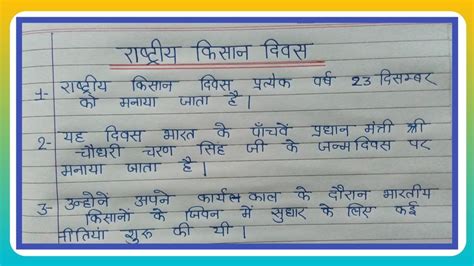 राष्ट्रीय किसान दिवस
1- राष्ट्रीय किसान दिवस प्रत्येक वर्ष 23 दिसम्बर
को मनाया जाता है।
2- यह दिवस भारत के पाँचवें प्रधान मंत्री श्री
चौधरी चरण सिंह जी के जन्मदिवस पर
मनाया जाता है।
3- उन्होनें अपने कार्यकाल के दौरान भारतीय
किसानों के जिवन में सुधार के लिए कई
नीतिया शुरू की थी।